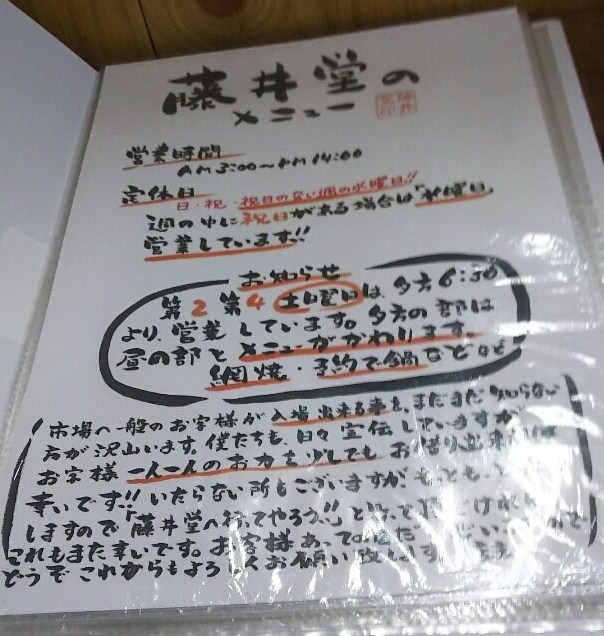 藤井堂の
メニュー
藤井
堂印
営業時間
AM 5:00〜PM 14:00
定休日
日・祝・祝日のない週の水曜日!!
週の中に祝日がある場合は「水曜日」
営業しています!!
お知らせ
第2第4土曜日は、夕方6:30
より、営業しています。夕方の部は
昼の部とメニューがかわります。
網焼・予約で鍋などなど
市場へ一般のお客様が入場出来る事を、まだまだ知らない
方が沢山います。僕たちも、日々宣伝していますが
お客様一人一人のお力を少しでもお借り出来れば
幸いです!!いたらない所もございますが、もっと
しますので「藤井堂へ行ってやろう!!」と
これもまた幸いです。お客様あっての
どうぞこれからもよろしくお願い致します